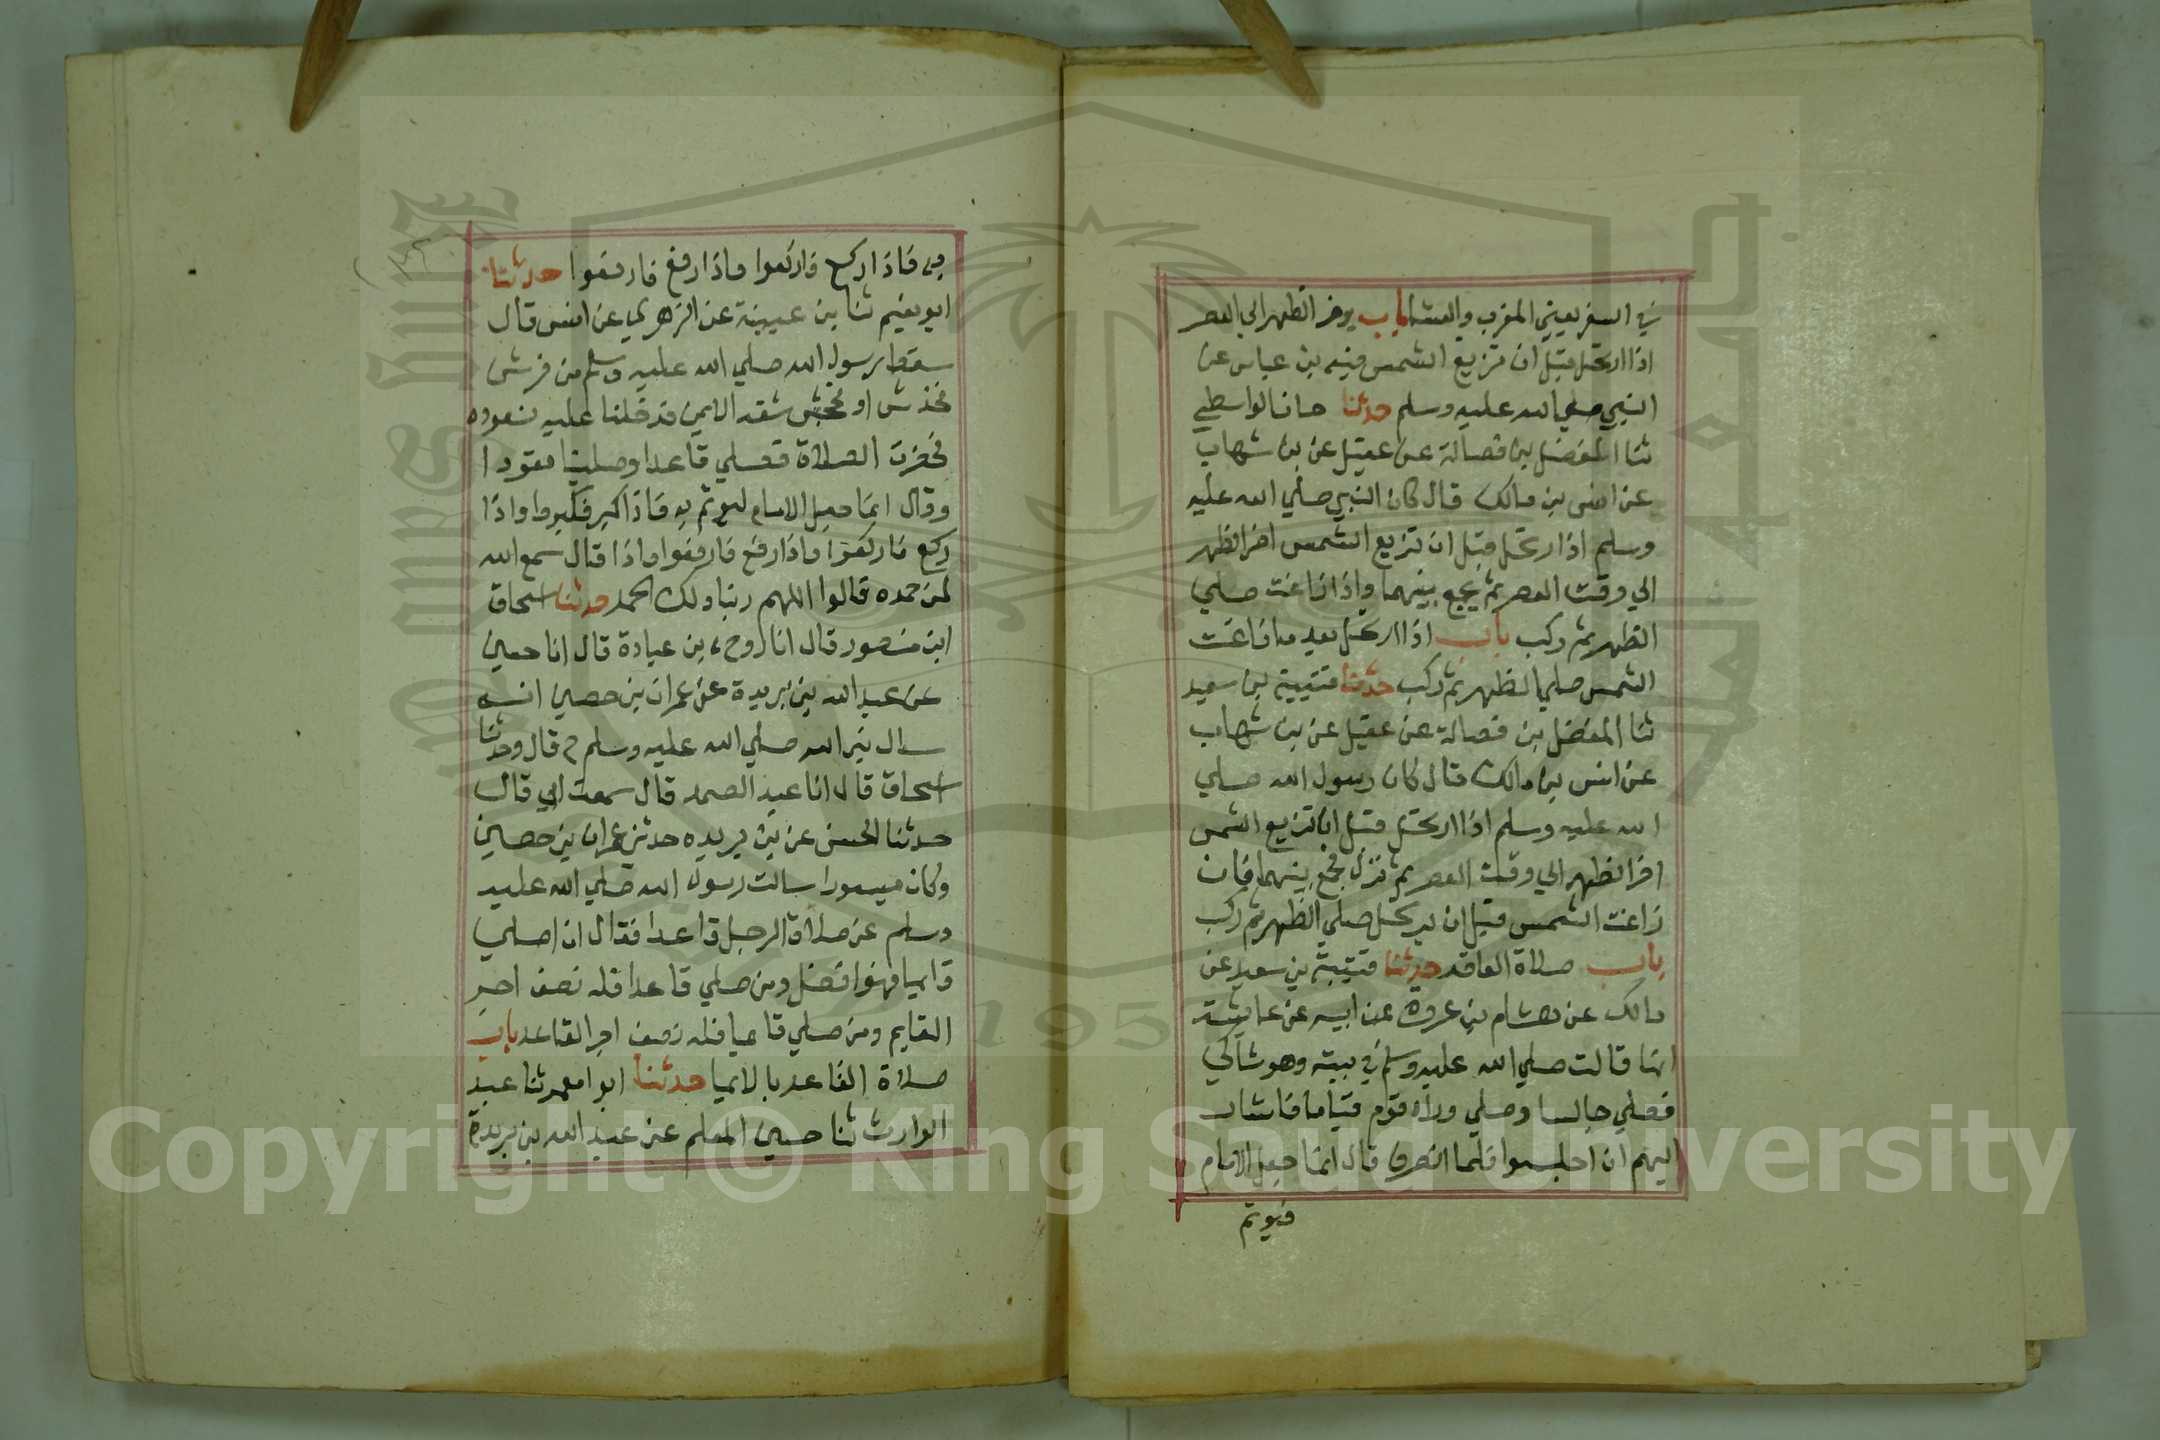 في السفر يعني المغرب والعشا باب يوخر الظهر الى العصر
اذا ارتحل قبل ان تزيغ الشمس فيه بن عباس عن
النبي صلي الله عليه وسلم حدثنا حسانا لواسطي
ثنا المفضل بن فضالة عن عقيل عن بن شهاب
عن انس بن مالك قال كان النبي صلي الله عليه
وسلم اذا ارتحل قبل ان تزيغ الشمس اخر الظهر
الي وقت العصر ثم يجمع بينهما واذا زاغت صلي
الظهر ثم ركب باب اذا ارتحل بعد ما زاغت
الشمس صلي الظهر ثم ركب حدثنا قتيبة بن سعيد
ثنا المفضل بن فضالة عن عقيل عن بن شهاب
عن انس بن مالك قال كان رسول الله صلي
الله عليه وسلم اذا ارتحل قبل ان تزيغ الشمس
اخر الظهر الي وقت العصر ثم نزل فجمع بينهما فان
زاغت الشمس قبل ان يرتحل صلي الظهر ثم ركب
باب صلاة القاعد حدثنا قتيبة بن سعيد عن
مالك عن هشام بن عروة عن ابيه عن عايشة
انها قالت صلي الله عليه وسلم في بيته وهو شاكي
فصلي جالسا وصلي وراه قوم قياما فاشار
اليهم ان اجلسوا فلما انصرف قال انما جعل الامام
ليوتم
به فاذا ركع فاركعوا واذا رفع فارفعوا حدثنا
ابو نعيم ثنا بن عيينة عن الزهري عن انس قال
سقط رسول الله صلي الله عليه وسلم من فرس
فخدش او فجحش شقه الايمن فدخلنا عليه نعوده
فحضرت الصلاة فصلي قاعدا وصلينا قعودا
وقال انما جعل الامام ليوتم به فاذا كبر فكبروا واذا
ركع فاركعوا واذا رفع فارفعوا واذا قال سمع الله
لمن حمده قالوا اللهم ربنا ولك الحمد حدثنا اسحاق
ابن منصور قال انا روح بن عبادة قال انا حسين
عن عبد الله بن بريدة عن عمران بن حصين انه
سال نبي الله صلي الله عليه وسلم ح قال وحدثنا
اسحاق قال انا عبد الصمد قال سمعت ابي قال
حدثنا الحسين عن بن بريده حدثني عمران بن حصين
وكان مبسورا سالت رسول الله صلي الله عليه
وسلم عن صلاة الرجل قاعدا فقال ان اصلي
قايما فهوا فضل ومن صلي قاعدا فله نصف اجر
القايم ومن صلي قا يما فله نصف اجر القاعد باب
صلاة القاعد بالايما حدثنا ابو امعمر ثنا عبد
الوارث ثنا حسين المعلم عن عبد الله بن بريدة
Copyright © King Saud University
King Saud University
1957